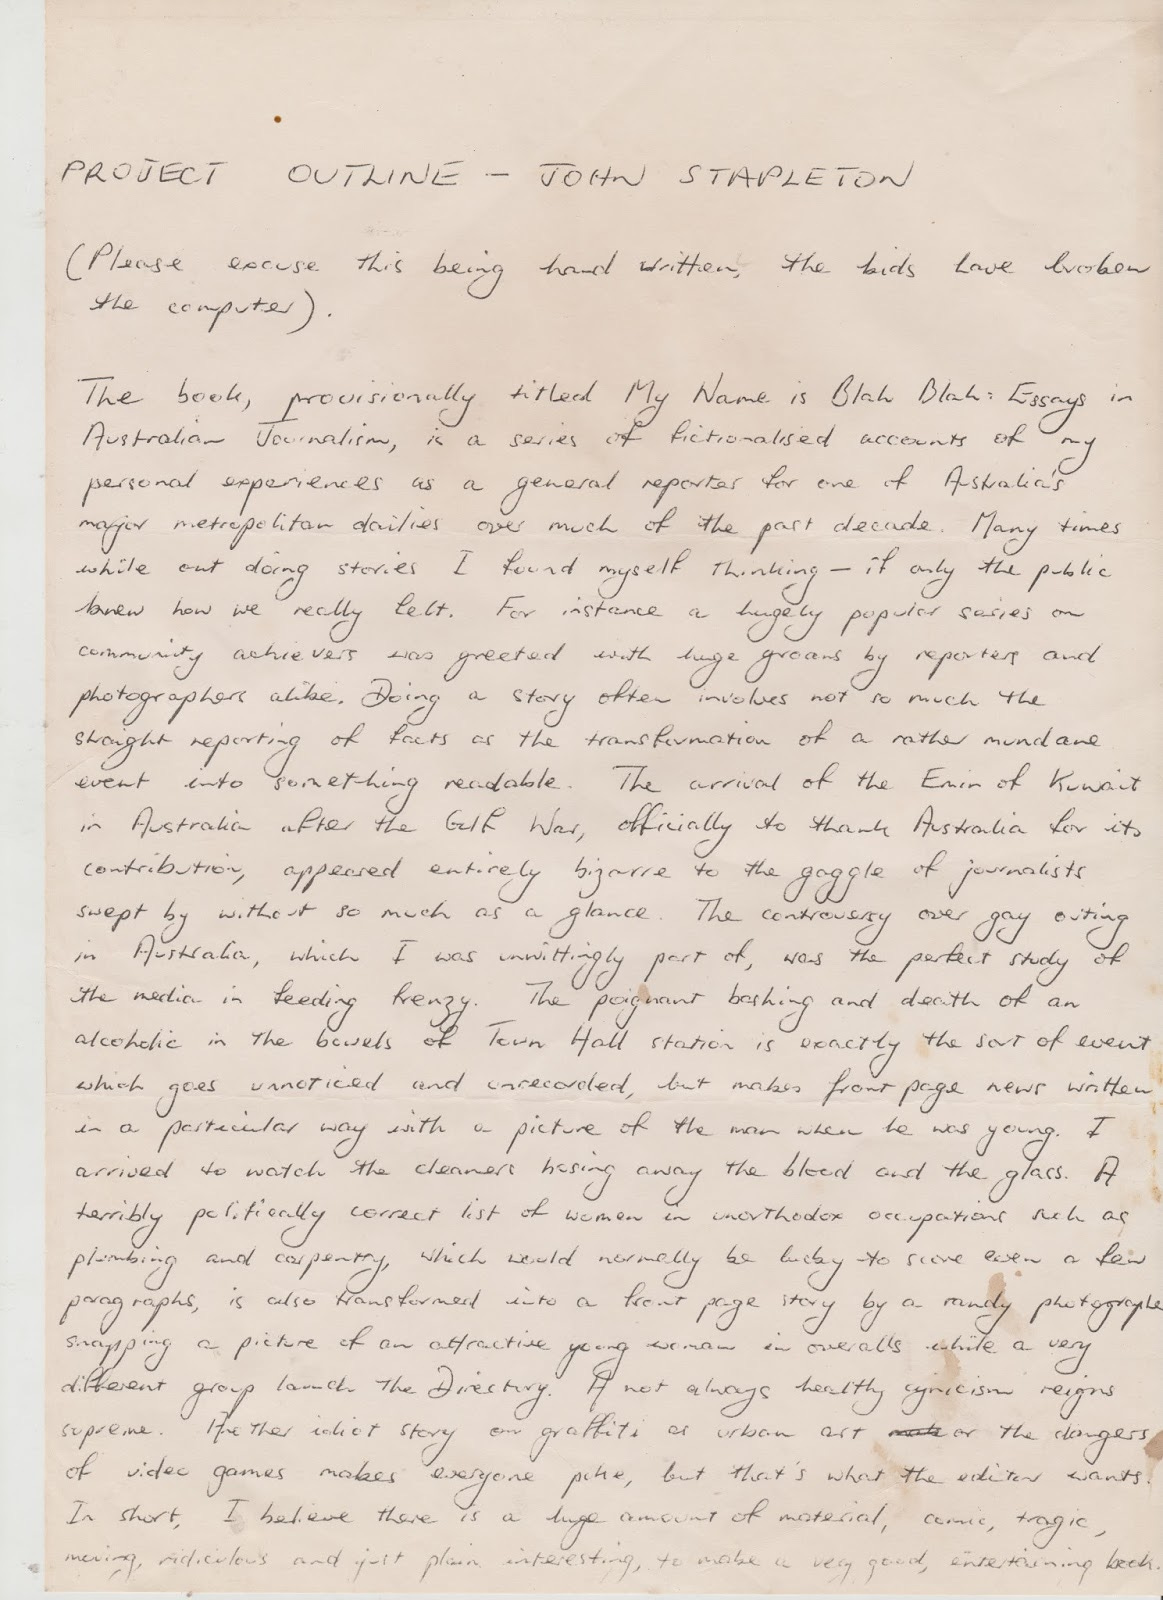 PROJECT OUTLINE - JOHN STAPLETON
(Please excuse this being hand written, the kids have broken
the computer).
The book, provisionally titled My Name is Blah Blah: Essays in
Australian Journalism, is a series of fictionalised accounts of my
personal experiences as a general reporter for one of Australia's
major metropolitan dailies over much of the past decade. Many times
while out doing stories I found myself thinking - if only the public
knew how we really felt. For instance a hugely popular series on
community achievers was greeted with huge groans by reporters and
photographers alike. Doing a story often involves not so much the
straight reporting of facts as the transformation of a rather mundane
event into something readable. The arrival of the Emir of Kuwait
in Australia after the Gulf War, officially to thank Australia for its
contribution, appeared entirely bizarre to the gaggle of journalists
swept by without so much as a glance. The controversy over gay outing
in Australia, which I was unwittingly part of, was the perfect study of
the media in feeding frenzy. The poignant bashing and death of an
alcoholic in the bowels of Town Hall station is exactly the sort of event
which goes unnoticed and unrecorded, but makes front page news written
in a particular way with a picture of the man when he was young. I
arrived to watch the cleaners hosing away the blood and the glass. A
terribly politically correct list of women in unorthodox occupations such as
plumbing and carpentry, which would normally be lucky to score even a few
paragraphs, is also transformed into a front page story by a randy photographe
snapping a picture of an attractive young woman in overalls while a very
different group launch the Directory. A not always healthy cynicism reigns
supreme. Another idiot story on graffiti as urban art or the dangers
of video games makes everyone puke, but that's what the editor wants.
In short, I believe there is a huge amount of material, comic, tragic,
moving, ridiculous and just plain interesting, to make a very good, entertaining book.